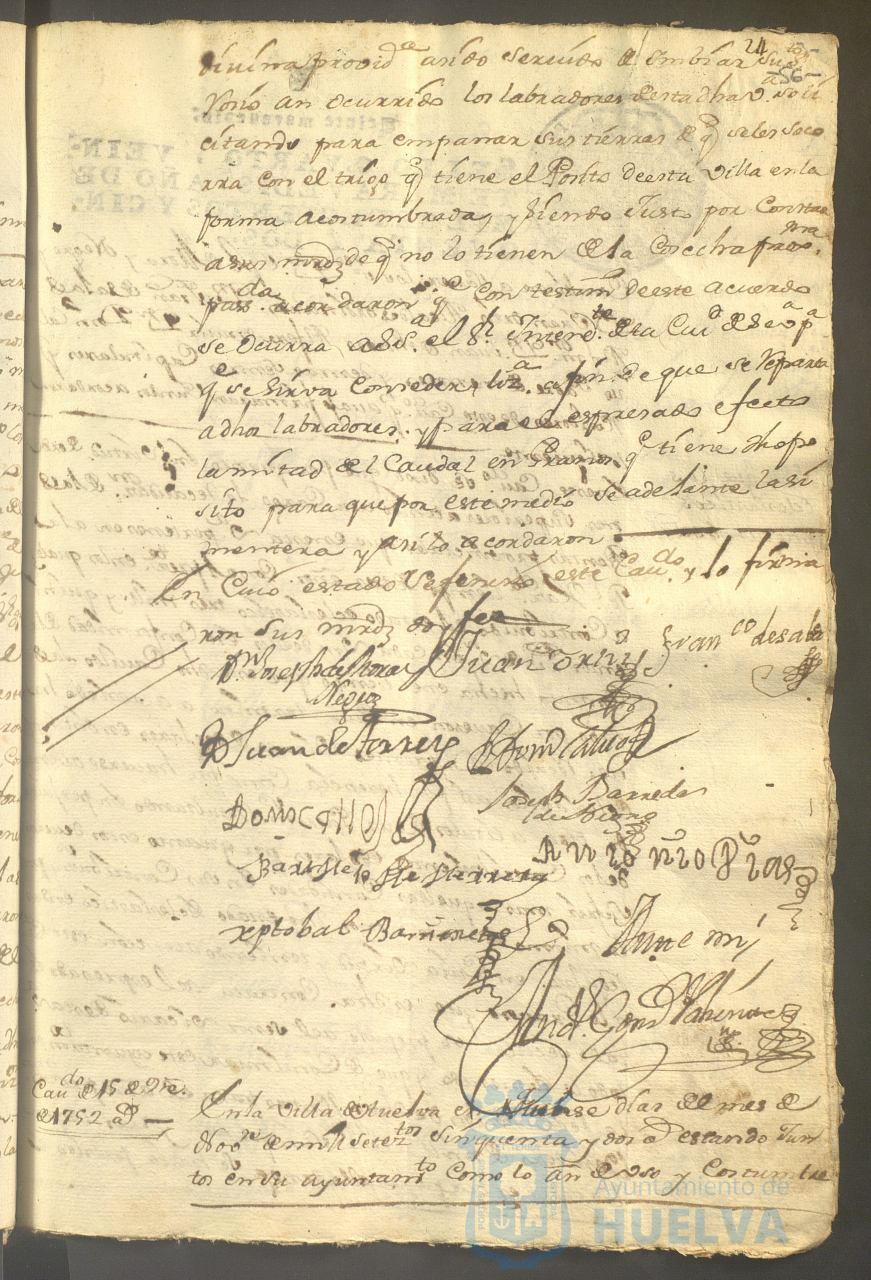 24
divina provid.ª a sido servido de embiar su
56
Roçio an ocurrido los labradores desta dha v.ª soli
citando para empanar sus tierras de q.e se les soco
rra con el trigo q.e tiene el Posito de esta villa en la
forma acostumbrada, y siendo Justo por Constar
a sus mrds de q.e no lo tienen de la Cosecha prox.ma
pass.da acordaron q.e con testim.º de este acuerdo
se ocurra a su s.ª el s.r Intend.te de la Ciu.d de Sev.ª p.ª
q.e se sirva conceder liz.ª a fin de que se Reparta
a dhos labradores, y para el espresado efecto
la mitad de el Caudal en Granos q.e tiene dho po
sito para que por este medio se adelante la si
mentera y asi lo acordaron
En Cuio estado se feneció este Cav.do y lo firma
ron sus mrds doy fee
D.n Joseph de
Negro
Juan
Fran.co de sala
D Juan de Torres
Joseph Barreda
Antonio
Bart.me
de Herrera
xptobal
Ante mi
Cav.do de 15 de 9re
de 1752 a.s
En la villa de Huelva en quinse dias de el mes de
Nov.re de mill setez.tos sinquenta y dos a.s estando Jun
tos en su ayuntam.to Como lo an de Uso y Costumbre
Ayuntamiento de
HUELVA